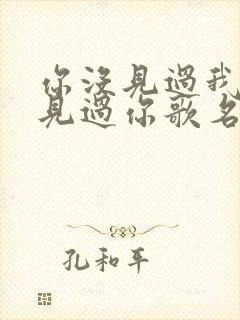 你沒見過我
見過你歌名
孔和平